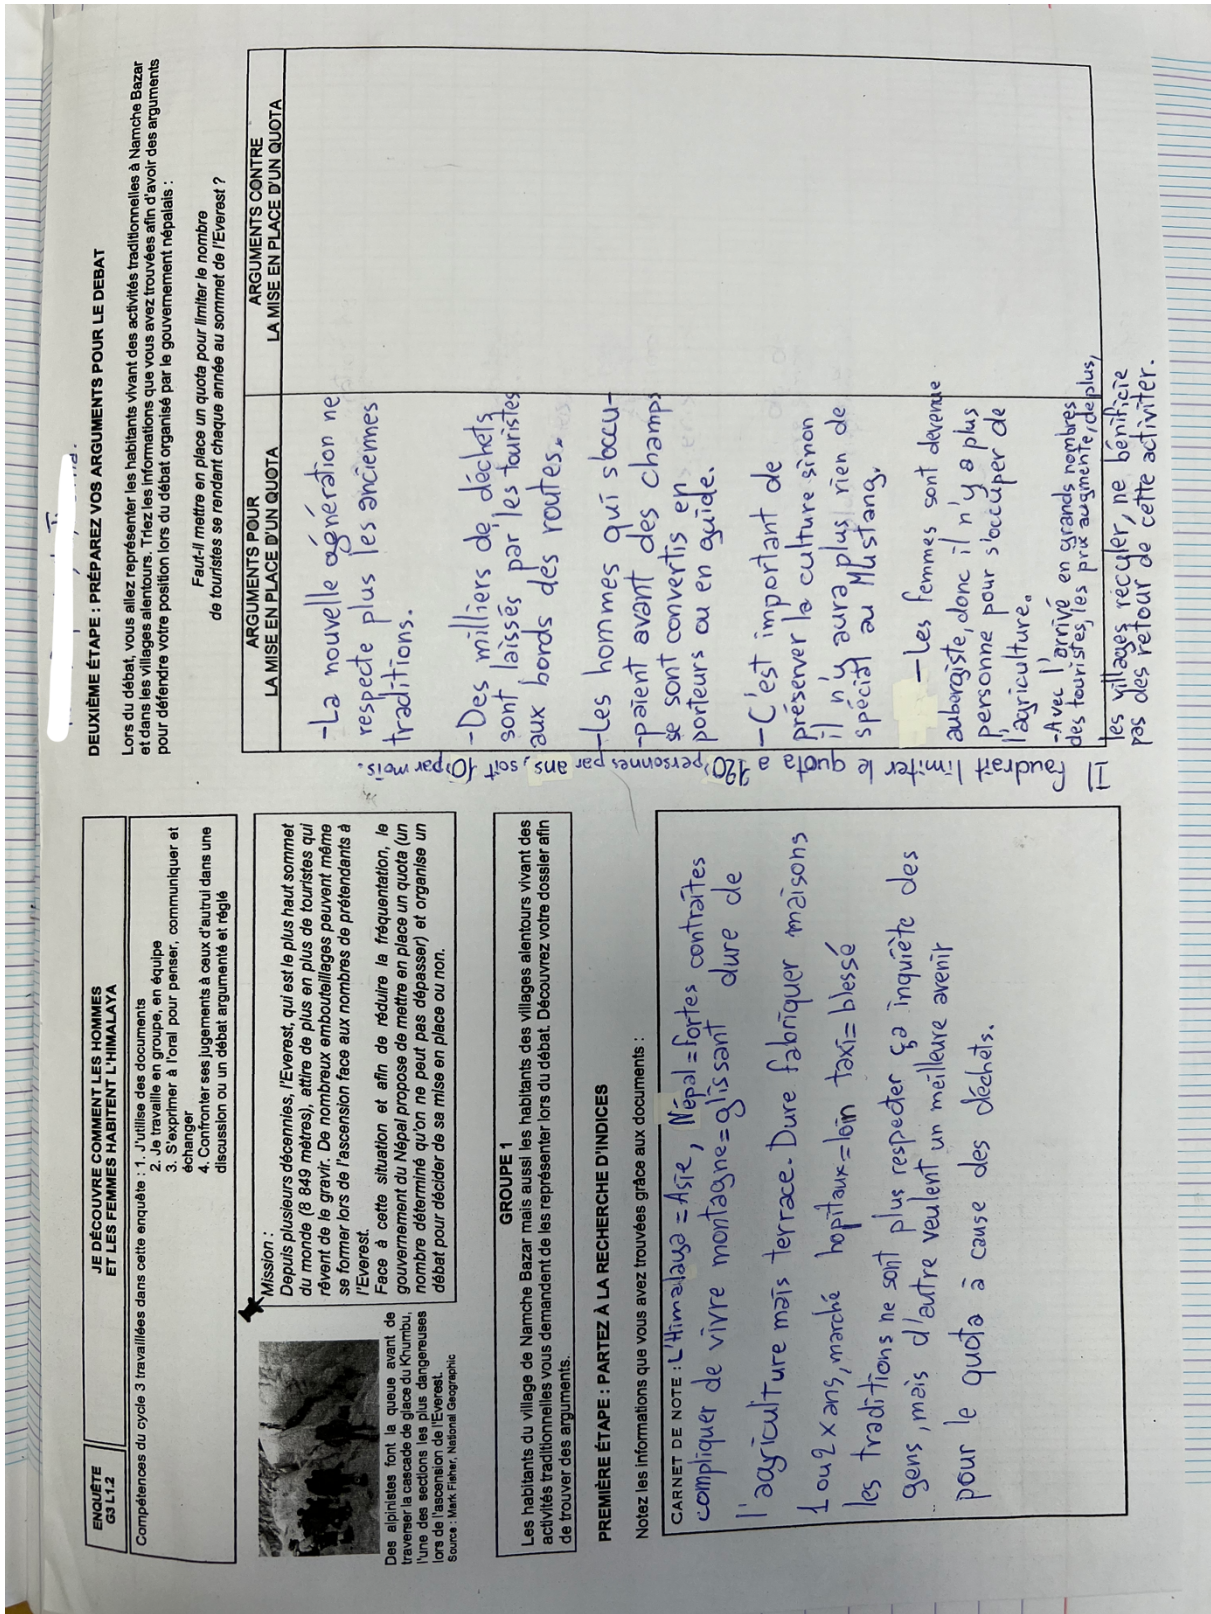 ENQUÊTE
G3 L1.2
JE DÉCOUVRE COMMENT LES HOMMES
ET LES FEMMES HABITENT L'HIMALAYA
Compétences du cycle 3 travaillées dans cette enquête : 1. J'utilise des documents
2. Je travaille en groupe, en équipe
3. S'exprimer à l'oral pour penser, communiquer et
échanger
4. Confronter ses jugements à ceux d'autrui dans une
discussion ou un débat argumenté et réglé
Des alpinistes font la queue avant de
traverser la cascade de glace du Khumbu,
l'une des sections les plus dangereuses
lors de l'ascension de l'Everest.
Source : Mark Fisher, National Geographic
Mission :
Depuis plusieurs décennies, l'Everest, qui est le plus haut sommet
du monde (8 849 mètres), attire de plus en plus de touristes qui
rêvent de le gravir. De nombreux embouteillages peuvent même
se former lors de l'ascension face aux nombres de prétendants à
l'Everest.
Face à cette situation et afin de réduire la fréquentation, le
gouvernement du Népal propose de mettre en place un quota (un
nombre déterminé qu'on ne peut pas dépasser) et organise un
débat pour décider de sa mise en place ou non.
GROUPE 1
Les habitants du village de Namche Bazar mais aussi les habitants des villages alentours vivant des
activités traditionnelles vous demandent de les représenter lors du débat. Découvrez votre dossier afin
de trouver des arguments.
PREMIÈRE ÉTAPE : PARTEZ À LA RECHERCHE D'INDICES
Notez les informations que vous avez trouvées grâce aux documents :
CARNET DE NOTE : L'Himalaya = Asie, Népal = fortes contraites
compliquer de vivre montagne = glissant dure de
l'agriculture mais terrace. Dure fabriquer maisons
1 ou 2 x ans, marché hopitaux = loin taxi = blessé
les traditions ne sont plus respecter ça inquiète des
gens, mais d'autre veulent un meilleure avenir
pour le quota à cause des déchets.
DEUXIÈME ÉTAPE : PRÉPAREZ VOS ARGUMENTS POUR LE DEBAT
Lors du débat, vous allez représenter les habitants vivant des activités traditionnelles à Namche Bazar
et dans les villages alentours. Triez les informations que vous avez trouvées afin d'avoir des arguments
pour défendre votre position lors du débat organisé par le gouvernement népalais :
Faut-il mettre en place un quota pour limiter le nombre
de touristes se rendant chaque année au sommet de l'Everest ?
ARGUMENTS POUR
LA MISE EN PLACE D'UN QUOTA
ARGUMENTS CONTRE
LA MISE EN PLACE D'UN QUOTA
- La nouvelle génération ne
respecte plus les anciennes
traditions.
- Des milliers de déchets
sont laissés par les touristes
aux bords des routes.
- Les hommes qui s'occu-
-paient avant des champs
se sont convertis en
porteurs ou en guide.
- C'est important de
préserver la culture sinon
il n'y aura plus rien de
spécial au Mustang.
- Les femmes sont devenue
aubergiste, donc il n'y a plus
personne pour s'occuper de
l'agriculture.
- Avec l'arrivé en grands nombres
des touristes, les prix augmente, de plus,
les villages reculer, ne bénificie
pas des retour de cette activiter.
Il faudrait limiter le quota a 120 personnes par ans, soit 10 par mois.